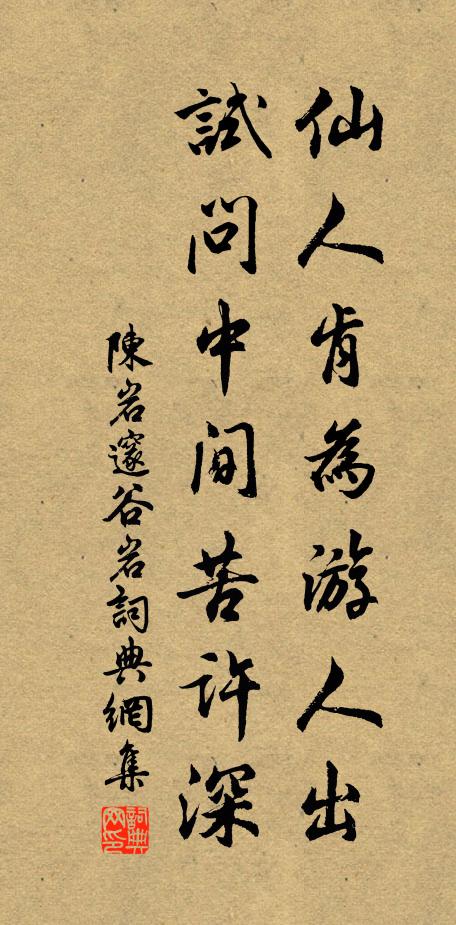 仙人肯為游人出
試問中間苦許深
陳岩邃谷岩詞典網集
詞典网印